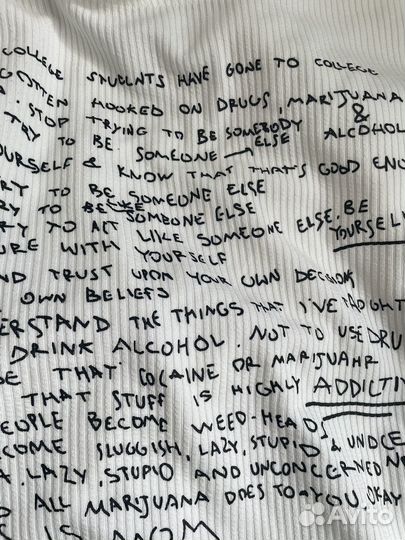 COLLEGE STUDENTS HAVE GONE TO COLLEGE
GOTTEN HOOKED ON DRUGS, MARIJUANA
& ALCOHOL
. STOP TRYING TO BE SOMEBODY ELSE
TRY TO BE SOMEONE →
OURSELF & KNOW THAT THAT'S GOOD ENO
RY TO BE SOMEONE ELSE
RY TO BE LIKE SOMEONE ELSE
RY TO ACT LIKE SOMEONE ELSE. BE YOURSEL
URE WITH YOURSELF
ND TRUST UPON YOUR OWN DECISIONS
OWN BELIEFS
ERSTAND THE THINGS THAT I'VE TAUGHT
DRINK ALCOHOL. NOT TO USE DRU
E THAT COCAINE OR MARIJUANA
THAT STUFF IS HIGHLY ADDICTIV
EOPLE BECOME WEED-HEADS
COME SLUGGISH, LAZY, STUPID & UNCO
A. LAZY, STUPID AND UNCONCERNED
ALL MARIJUANA DOES TO YOU, OKAY
IS MOM
Avito